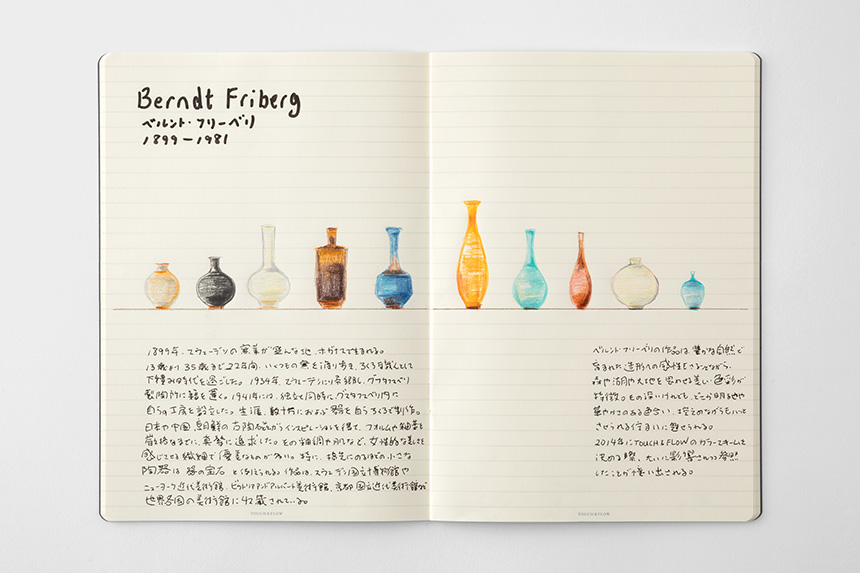 Berndt Friberg
ベルント・フリーベリ
1899 − 1981
1899年、スウェーデンの窯業が盛んな地、ホガナスで生まれる。
13歳より35歳まで22年間、いくつもの窯を渡り歩き、ろくろ職人として
下積み時代を過ごした。1934年、スウェーデンに グスタフスベリ
製陶所に籍を置く。1941年には、独立と同時にグスタフスベリ内に
自らの工房を設立した。生涯、数十万におよぶ器を自らろくろで制作。
日本や中国、朝鮮の古陶磁からインスピレーションを得て、フォルムや釉薬を
真摯に追求した。その細調や形など、女性的な美しさを
感じさせる繊細で優美なものが多い。特に、指先にのるほどの小さな
陶器は 器の宝石 と例えられる。作品は、スウェーデン国立博物館や
ニューヨーク近代美術館、ビクトリアアンドアルバート美術館、京都国立近代美術館など
世界各国の美術館に収蔵されている。
TOUCH & FLOW
ベルント・フリーベリの作品は、豊かな自然で
育まれた造形への感性もさることながら、
森や湖や大地を思わせる美しい色彩が
特徴。もの深いけれども、どこか明るさや
華やかさのある色合い、 ながらもハッと
させられる佇まいに魅せられる。
2014年にTOUCH & FLOWのカラースキームを
決める際、大いに影響され 
したことが思い出される。
TOUCH & FLOW